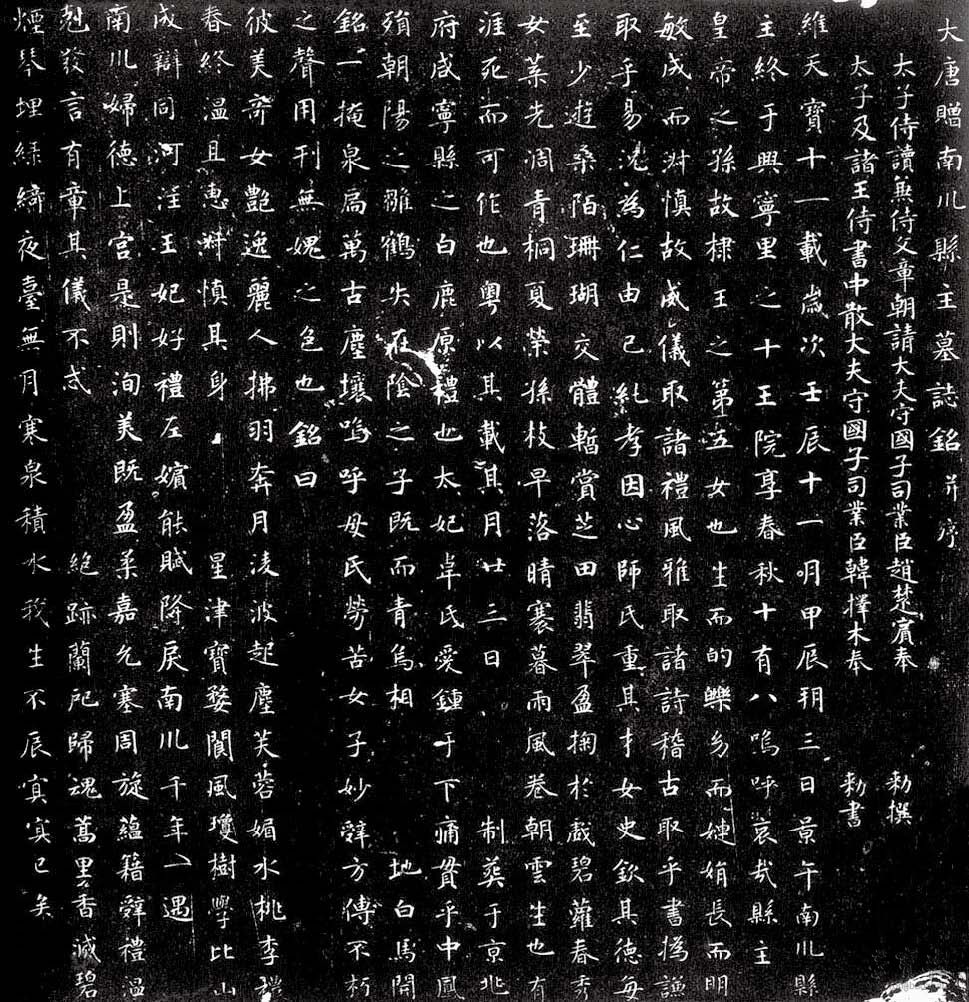 大唐贈南川縣主墓誌銘并序
太子侍讀兼侍文章朝請大夫守國子司業臣趙楚賓奉 勑撰
太子及諸王侍書中散大夫守國子司業臣韓擇木奉 勑書
維天寶十一載歲次壬辰十一月甲辰朔三日景午南川縣
主終于興寧里之十王院享春秋十有八嗚呼哀哉縣主
皇帝之孫故棣王之第五女也生而的皪幼而婕娟長而明
敏成而淑慎故威儀取諸禮風雅取諸詩稽古取乎書撝謙
取乎易沈為仁由己純孝因心師氏重其才女史欽其德每
至少遊桑陌珊瑚交體暫賞芝田翡翠盈掬於戲碧蘿春秀
女葉先凋青桐夏榮孫枝早落晴褰暮雨風卷朝雲生也有
涯死而可作也粵以其載其月廿三日 制葬于京兆
府咸寧縣之白鹿原禮也太妃卓氏愛鍾于下痛貫乎中鳳
殞朝陽之雛鶴失在陰之子既而青烏相 地白馬開
銘一掩泉扃萬古塵壤嗚呼母氏勞苦女子妙辭方傳不朽
之聲用刊無媿之色也銘曰
彼美帝女艷逸麗人拂羽奔月淩波起塵芙蓉媚水桃李穠
春終溫且惠淑慎其身 星津寶婺閬風瓊樹學比山
成辯同河注王妃好禮左嬪能賦降戾南川千年一遇
南川婦德上宮是則洵美既盈柔嘉允塞周旋蘊籍辭禮溫
剋發言有章其儀不忒 絕跡蘭戺歸魂蒿里香滅碧
煙琴埋綠綺夜臺無月寒泉積水我生不辰寘寘已矣